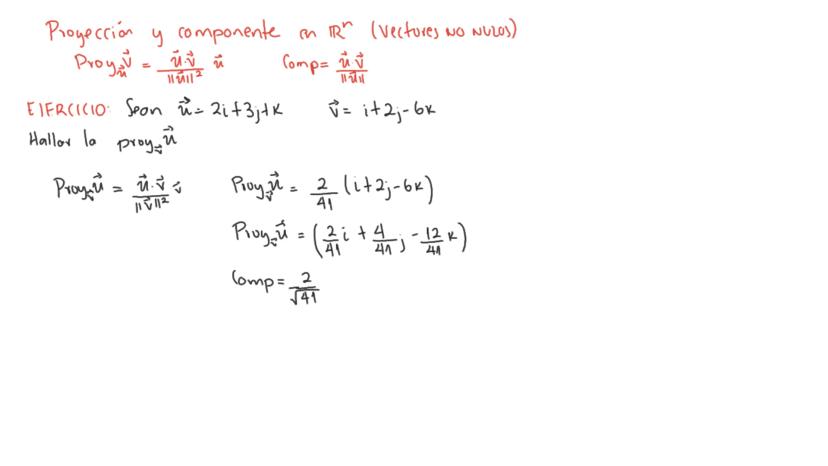 Proyección y componente en ℝⁿ (Vectores NO NULOS)
Proy_u⃗ v⃗ = u⃗·v⃗ / ||u⃗||² u⃗ Comp = u⃗·v⃗ / ||u⃗||
EJERCICIO: Sean u⃗ = 2i+3j+k v⃗ = i+2j-6k
Hallar la proy_v⃗ u⃗
Proy_v⃗ u⃗ = u⃗·v⃗ / ||v⃗||² v⃗ Proy_v⃗ u⃗ = 2/41 (i+2j-6k)
Proy_v⃗ u⃗ = (2/41 i + 4/41 j - 12/41 k)
Comp = 2/√41